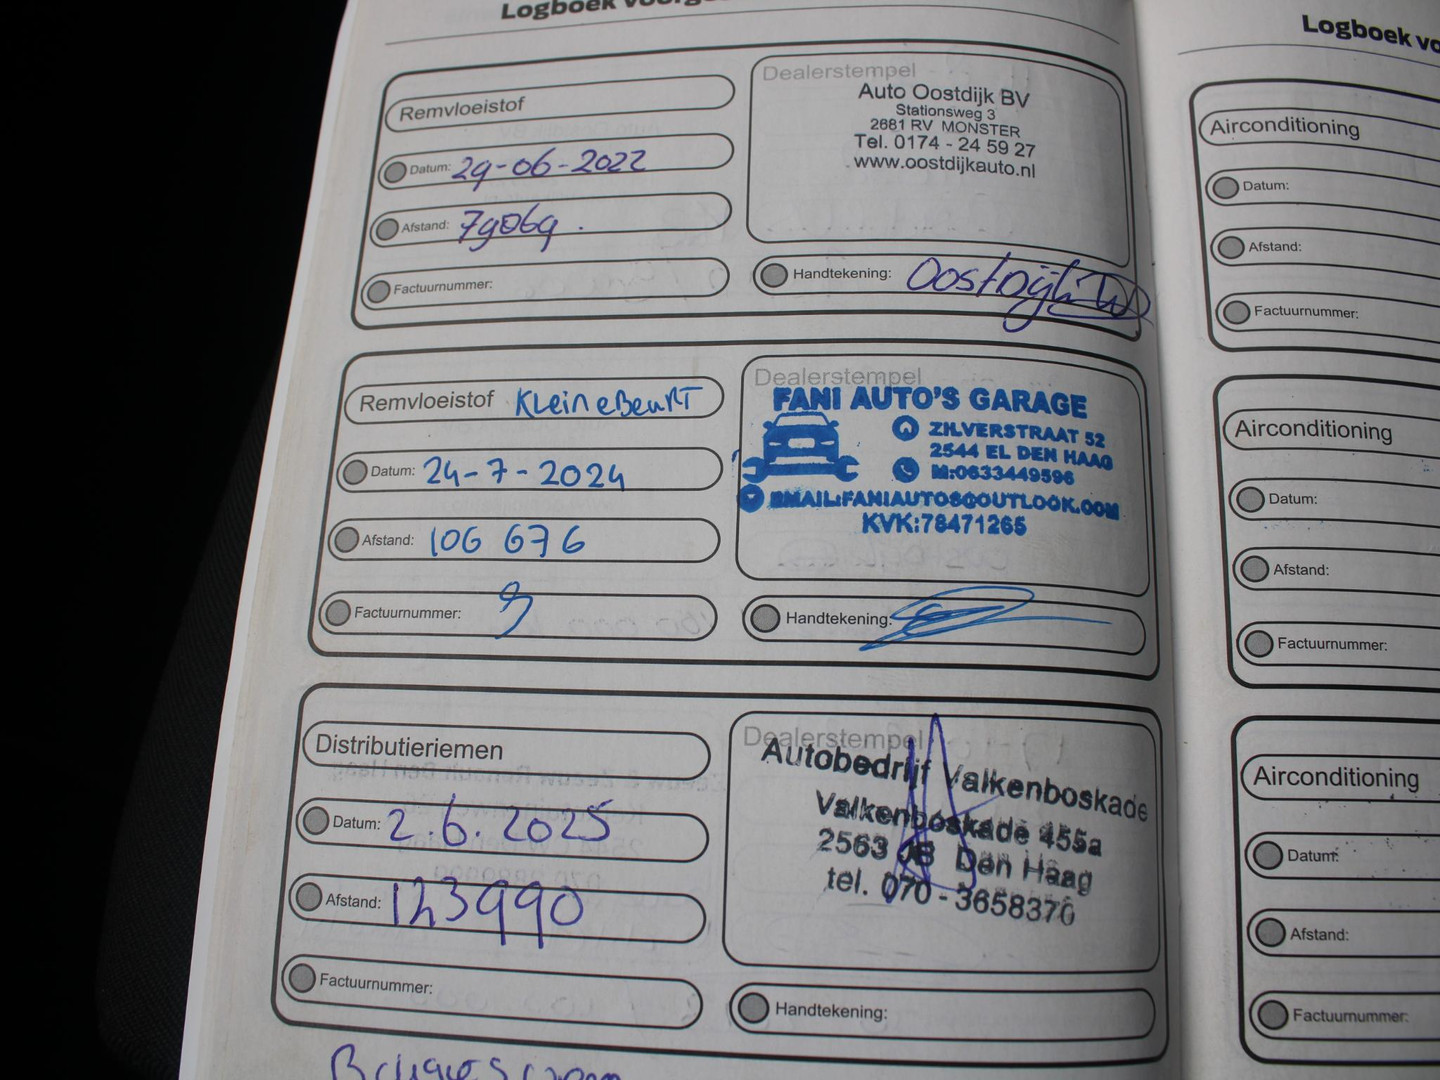 Logboek
Remvloeistof
Datum: 29-06-2022
Afstand: 79069.
Factuurnummer:
Dealerstempel
Auto Oostdijk BV
Stationsweg 3
2681 RV MONSTER
Tel. 0174 - 24 59 27
www.oostdijkauto.nl
Handtekening: Oostdijk
Remvloeistof KleineBeurT
Datum: 24-7-2024
Afstand: 106 676
Factuurnummer: 9
Dealerstempel
FANI AUTO'S GARAGE
ZILVERSTRAAT 52
2544 EL DEN HAAG
M:0633449596
EMAIL:FANIAUTOS@OUTLOOK.COM
KVK:78471265
Handtekening:
Distributieriemen
Datum: 2.6.2025
Afstand: 123990
Factuurnummer:
Dealerstempel
Autobedrijf Valkenboskade
Valkenboskade 455a
2563 JB Den Haag
tel. 070 - 3658370
Handtekening:
Logboek vo
Airconditioning
Datum:
Afstand:
Factuurnummer:
Airconditioning
Datum:
Afstand:
Factuurnummer:
Airconditioning
Datum:
Afstand:
Factuurnummer: